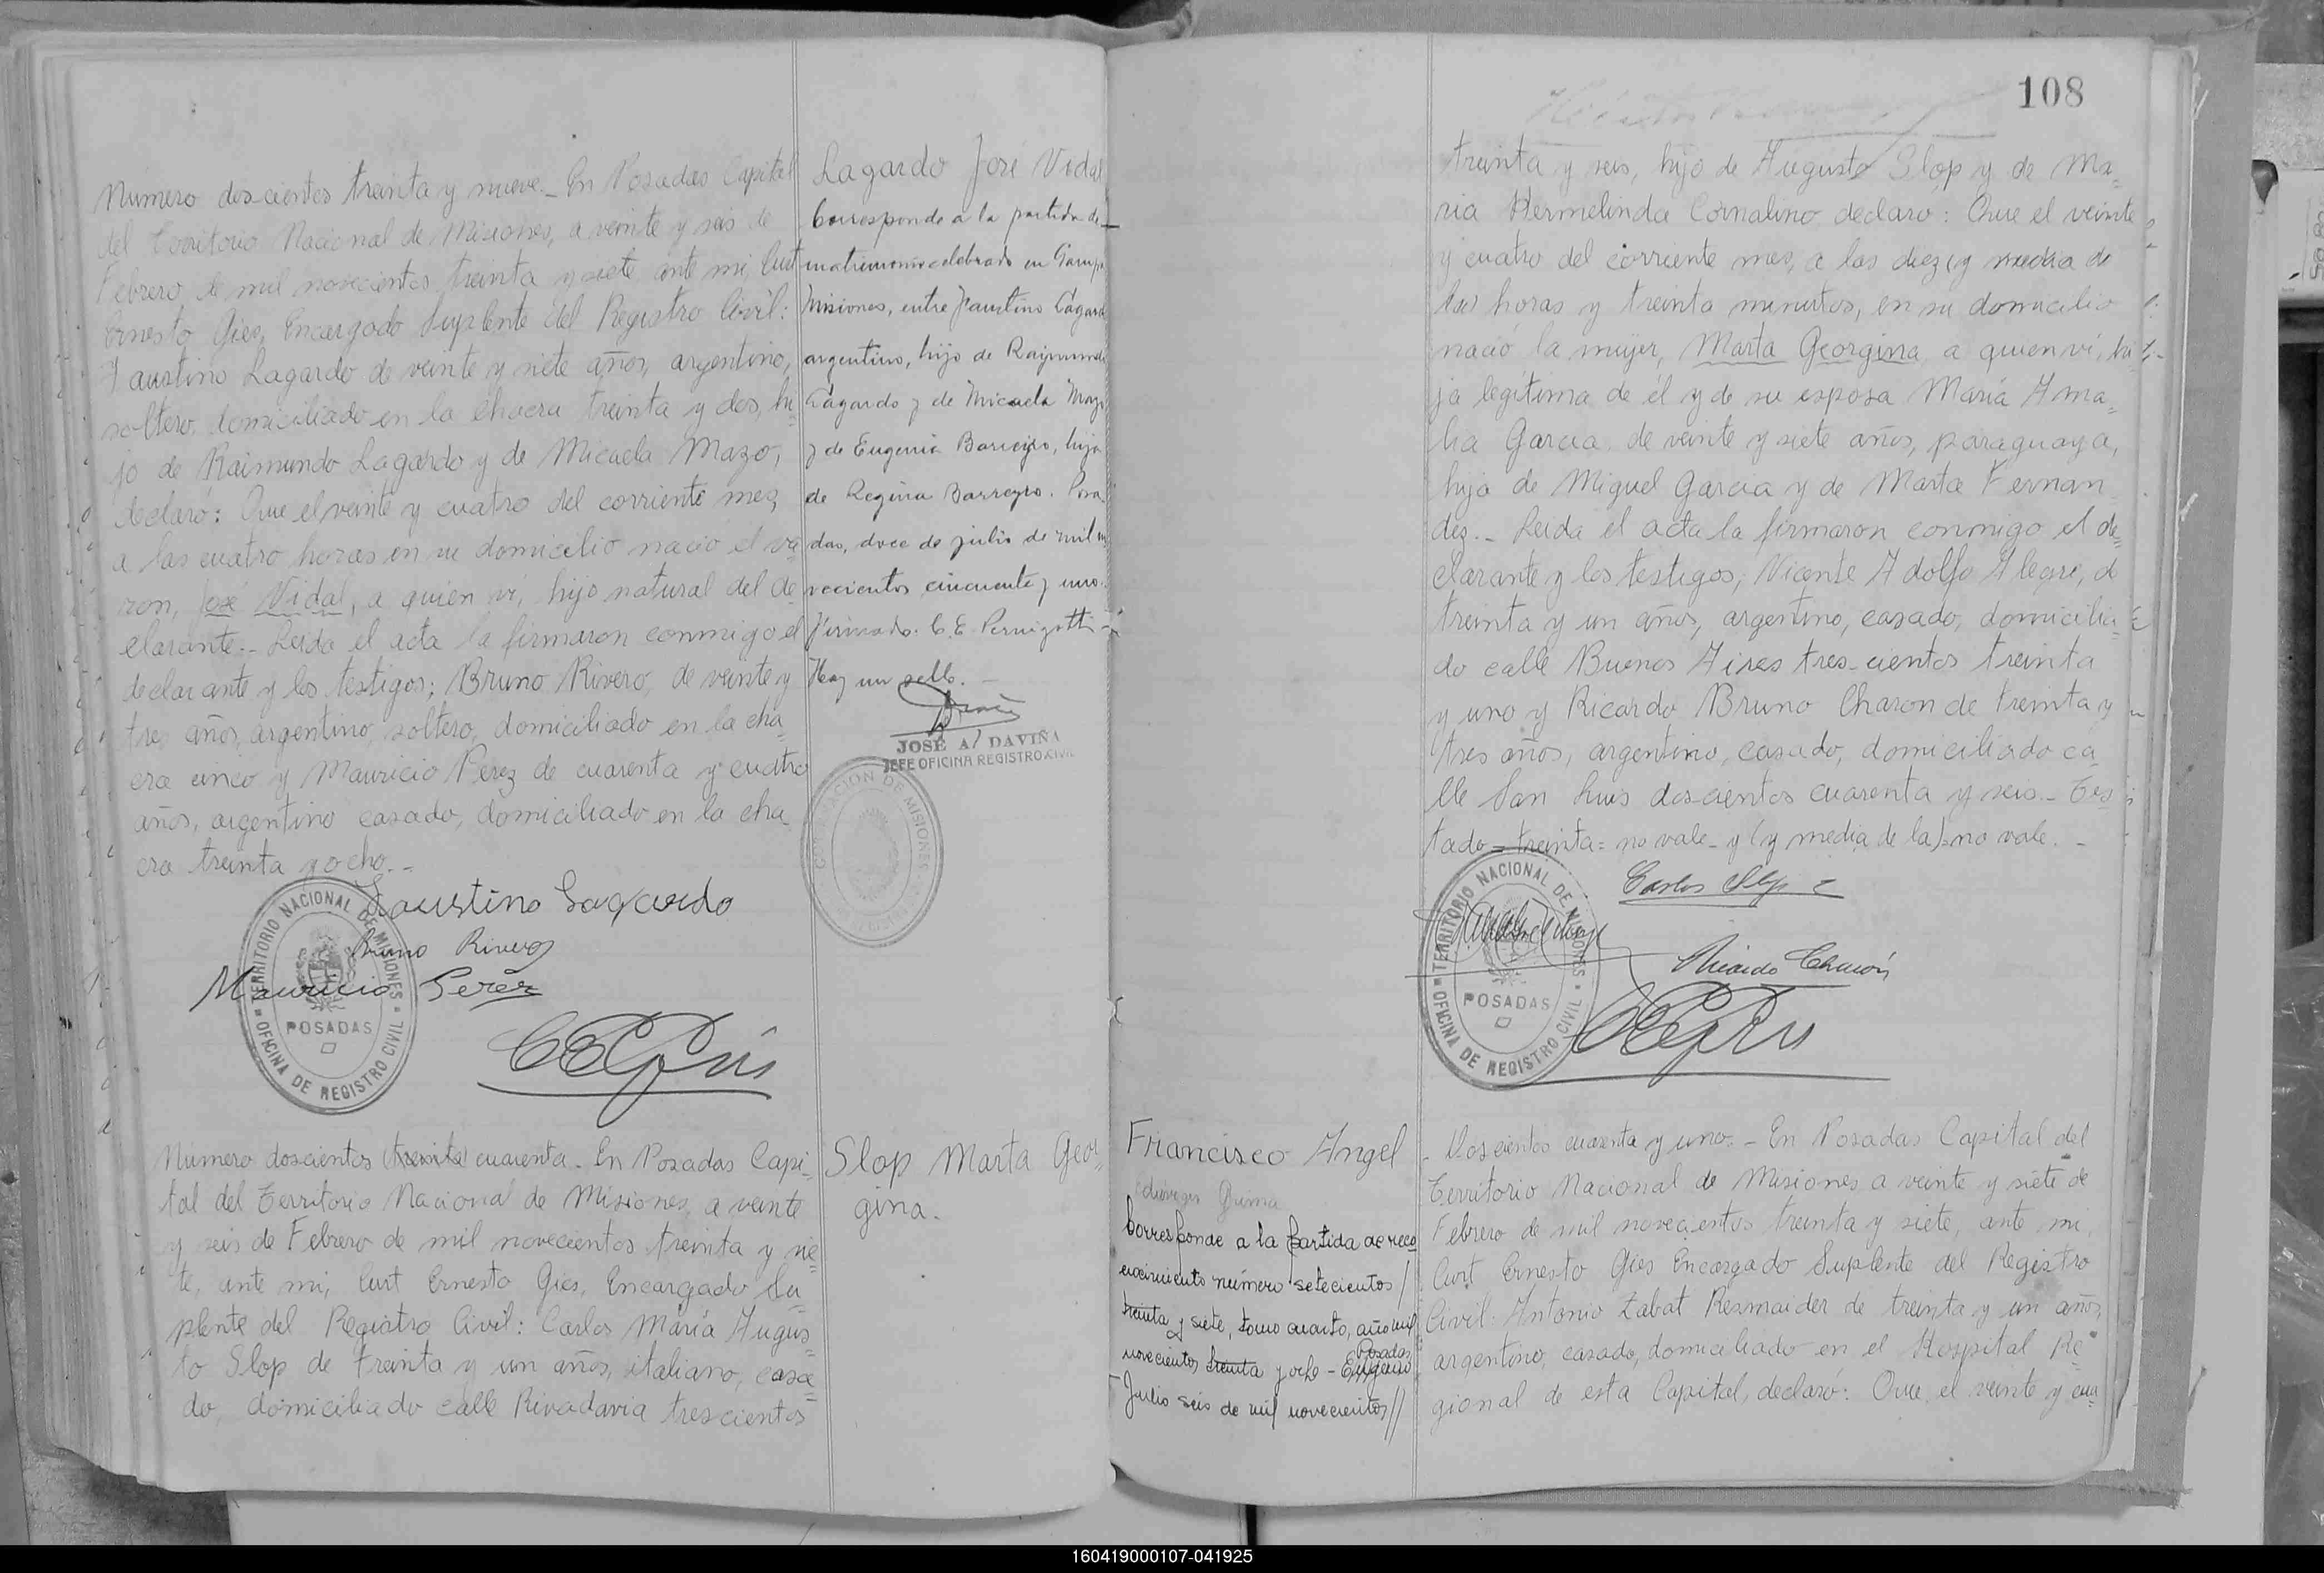 Número dos-cientos treinta y nueve._ En Posadas Capital
del Territorio Nacional de Misiones, a veinte y seis de
Febrero de mil novecientos treinta y siete ante mi, Curt
Ernesto Gies, Encargado Suplente del Registro Civil:
Faustino Lagardo de veinte y siete años, argentino,
soltero, domiciliado en la chacra treinta y dos, hi=
jo de Raimundo Lagardo y de Micaela Mazo,
declaró: Que el veinte y cuatro del corriente mes,
a las cuatro horas en su domicilio nació el va=
ron, José Vidal, a quien ví, hijo natural del de=
clarante.- Leida el acta la firmaron conmigo el
declarante y los testigos; Bruno Rivero, de veinte y
tres años, argentino, soltero, domiciliado en la cha=
cra cinco y Mauricio Perez de cuarenta y cuatro
años, argentino casado, domiciliado en la cha_
cra treinta y ocho.-
Faustino Lagardo
Bruno Rivero
Mauricio Perez
TERRITORIO NACIONAL DE MISIONES
POSADAS
OFICINA DE REGISTRO CIVIL
Lagardo José Vidal
Corresponde a la partida de
matrimonio celebrado en
Misiones, entre Faustino Lagardo
argentino, hijo de Raymundo
Lagardo y de Micaela Mazo
y de Eugenia Barreyro, hija
de Regina Barreyro. Posa_
das, doce de julio de mil no
vecientos cincuenta y uno.
Firmado: C. E. Pernigotti
Hay un sello. _
JOSÉ A. DAVIÑA
JEFE OFICINA REGISTRO CIVIL
DE MISIONES
Número doscientos (treinta) cuarenta. En Posadas Capi=
tal del Territorio Nacional de Misiones, a veinte
y seis de Febrero de mil novecientos treinta y sie=
te, ante mi, Curt Ernesto Gies, Encargado Su=
plente del Registro Civil: Carlos María Augus=
to Slop de treinta y un años, italiano, casa=
do, domiciliado calle Rivadavia trescientos
Slop Marta Geor=
gina.
108
treinta y seis, hijo de Augusto Slop y de Ma=
ria Hermelinda Cornalino declaró: Que el veinte
y cuatro del corriente mes, a las diez (y media de
las) horas y treinta minutos, en su domicilio
nació la mujer, Marta Georgina a quien ví, hi=
ja legítima de él y de su esposa María Ama=
lia Garcia, de veinte y siete años, paraguaya,
hija de Miguel Garcia y de Marta Fernan
dez.- Leida el acta la firmaron conmigo el de=
clarante y los testigos; Vicente Adolfo Alegre, de
treinta y un años, argentino, casado, domicilia=
do calle Buenos Aires tres-cientos treinta
y uno y Ricardo Bruno Charon de treinta y
tres años, argentino, casado, domiciliado ca
lle San Luis dos-cientos cuarenta y seis._ Tes
tado = treinta = no vale_ y (y media de la) = no vale. -
Carlos Slop
Ricardo Charon
TERRITORIO NACIONAL DE MISIONES
POSADAS
OFICINA DE REGISTRO CIVIL
Francisco Angel
Corresponde a la partida de reco
nocimiento número setecientos /
treinta y siete, tomo cuarto, año mil
novecientos treinta y ocho - Posadas
Julio seis de mil novecientos //
- Doscientos cuarenta y uno._ En Posadas Capital del
Territorio Nacional de Misiones a veinte y siete de
Febrero de mil novecientos treinta y siete, ante mi,
Curt Ernesto Gies Encargado Suplente del Registro
Civil: Antonio Zabat Resmaider de treinta y un años,
argentino, casado, domiciliado en el Hospital Re=
gional de esta Capital, declaró: Que el veinte y cua
160419000107-041925